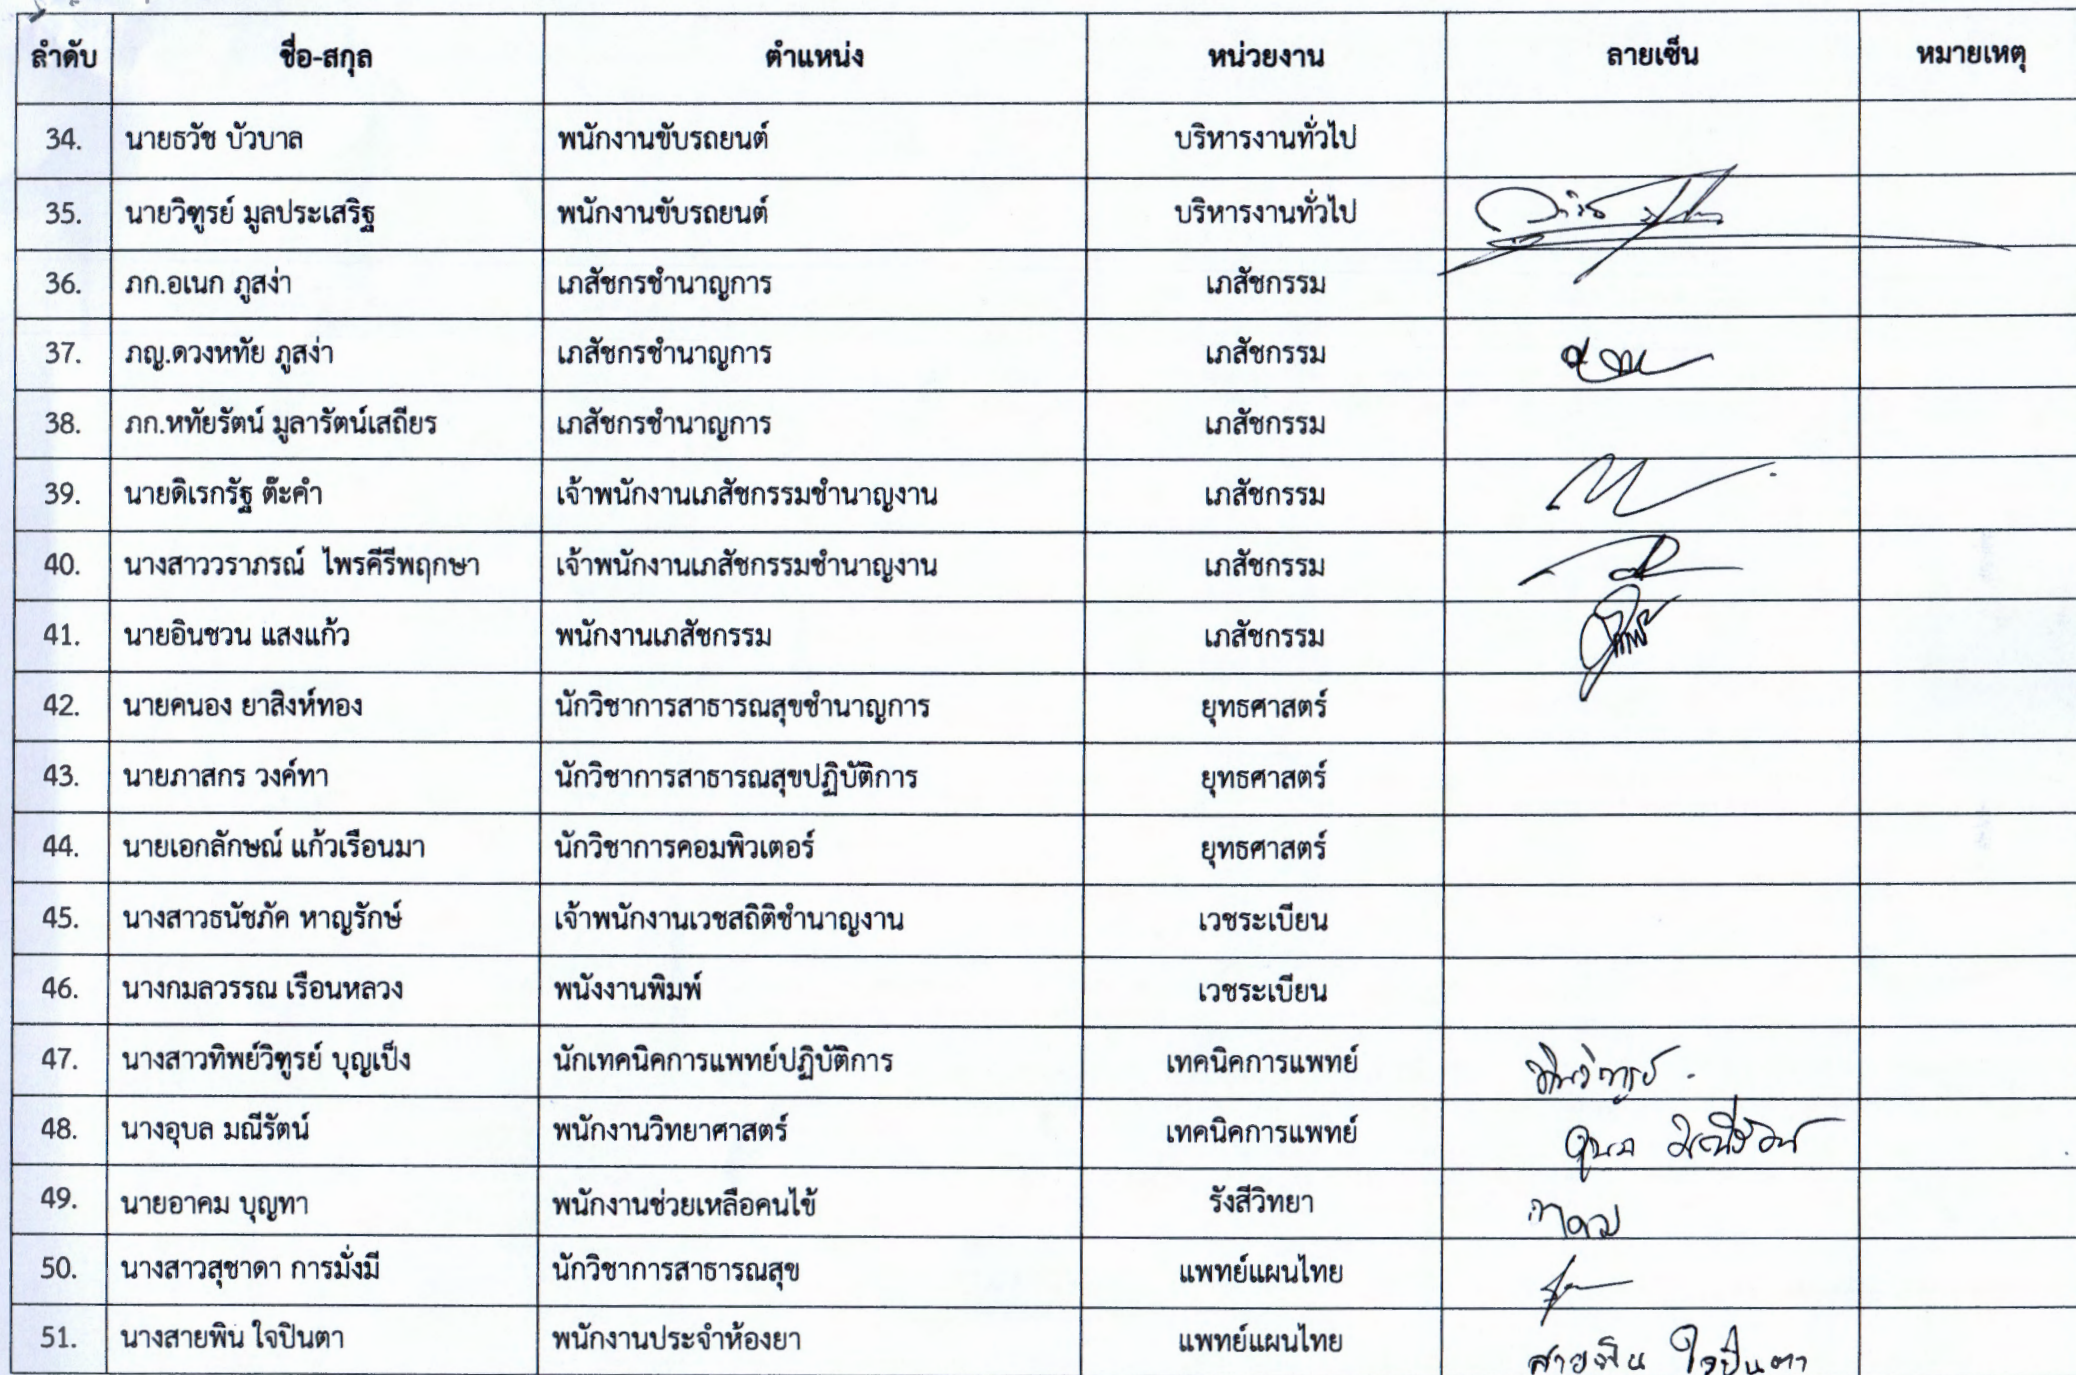 ลำดับ ชื่อ-สกุล ตำแหน่ง หน่วยงาน ลายเซ็น หมายเหตุ
34. นายธวัช บัวบาล พนักงานขับรถยนต์ บริหารงานทั่วไป
35. นายวิฑูรย์ มูลประเสริฐ พนักงานขับรถยนต์ บริหารงานทั่วไป
36. ภก.อเนก ภูสง่า เภสัชกรชำนาญการ เภสัชกรรม
37. ภญ.ดวงหทัย ภูสง่า เภสัชกรชำนาญการ เภสัชกรรม
38. ภก.หทัยรัตน์ มูลารัตน์เสถียร เภสัชกรชำนาญการ เภสัชกรรม
39. นายดิเรกรัฐ ต๊ะคำ เจ้าพนักงานเภสัชกรรมชำนาญงาน เภสัชกรรม
40. นางสาววราภรณ์ ไพรคีรีพฤกษา เจ้าพนักงานเภสัชกรรมชำนาญงาน เภสัชกรรม
41. นายอินชวน แสงแก้ว พนักงานเภสัชกรรม เภสัชกรรม
42. นายคนอง ยาสิงห์ทอง นักวิชาการสาธารณสุขชำนาญการ ยุทธศาสตร์
43. นายภาสกร วงค์ทา นักวิชาการสาธารณสุขปฏิบัติการ ยุทธศาสตร์
44. นายเอกลักษณ์ แก้วเรือนมา นักวิชาการคอมพิวเตอร์ ยุทธศาสตร์
45. นางสาวธนัชภัค หาญรักษ์ เจ้าพนักงานเวชสถิติชำนาญงาน เวชระเบียน
46. นางกมลวรรณ เรือนหลวง พนังงานพิมพ์ เวชระเบียน
47. นางสาวทิพย์วิฑูรย์ บุญเป็ง นักเทคนิคการแพทย์ปฏิบัติการ เทคนิคการแพทย์
48. นางอุบล มณีรัตน์ พนักงานวิทยาศาสตร์ เทคนิคการแพทย์ อุบล มณีรัตน์
49. นายอาคม บุญทา พนักงานช่วยเหลือคนไข้ รังสีวิทยา อาคม
50. นางสาวสุชาดา การมั่งมี นักวิชาการสาธารณสุข แพทย์แผนไทย
51. นางสายพิน ใจปินตา พนักงานประจำห้องยา แพทย์แผนไทย สายพิน ใจปินตา